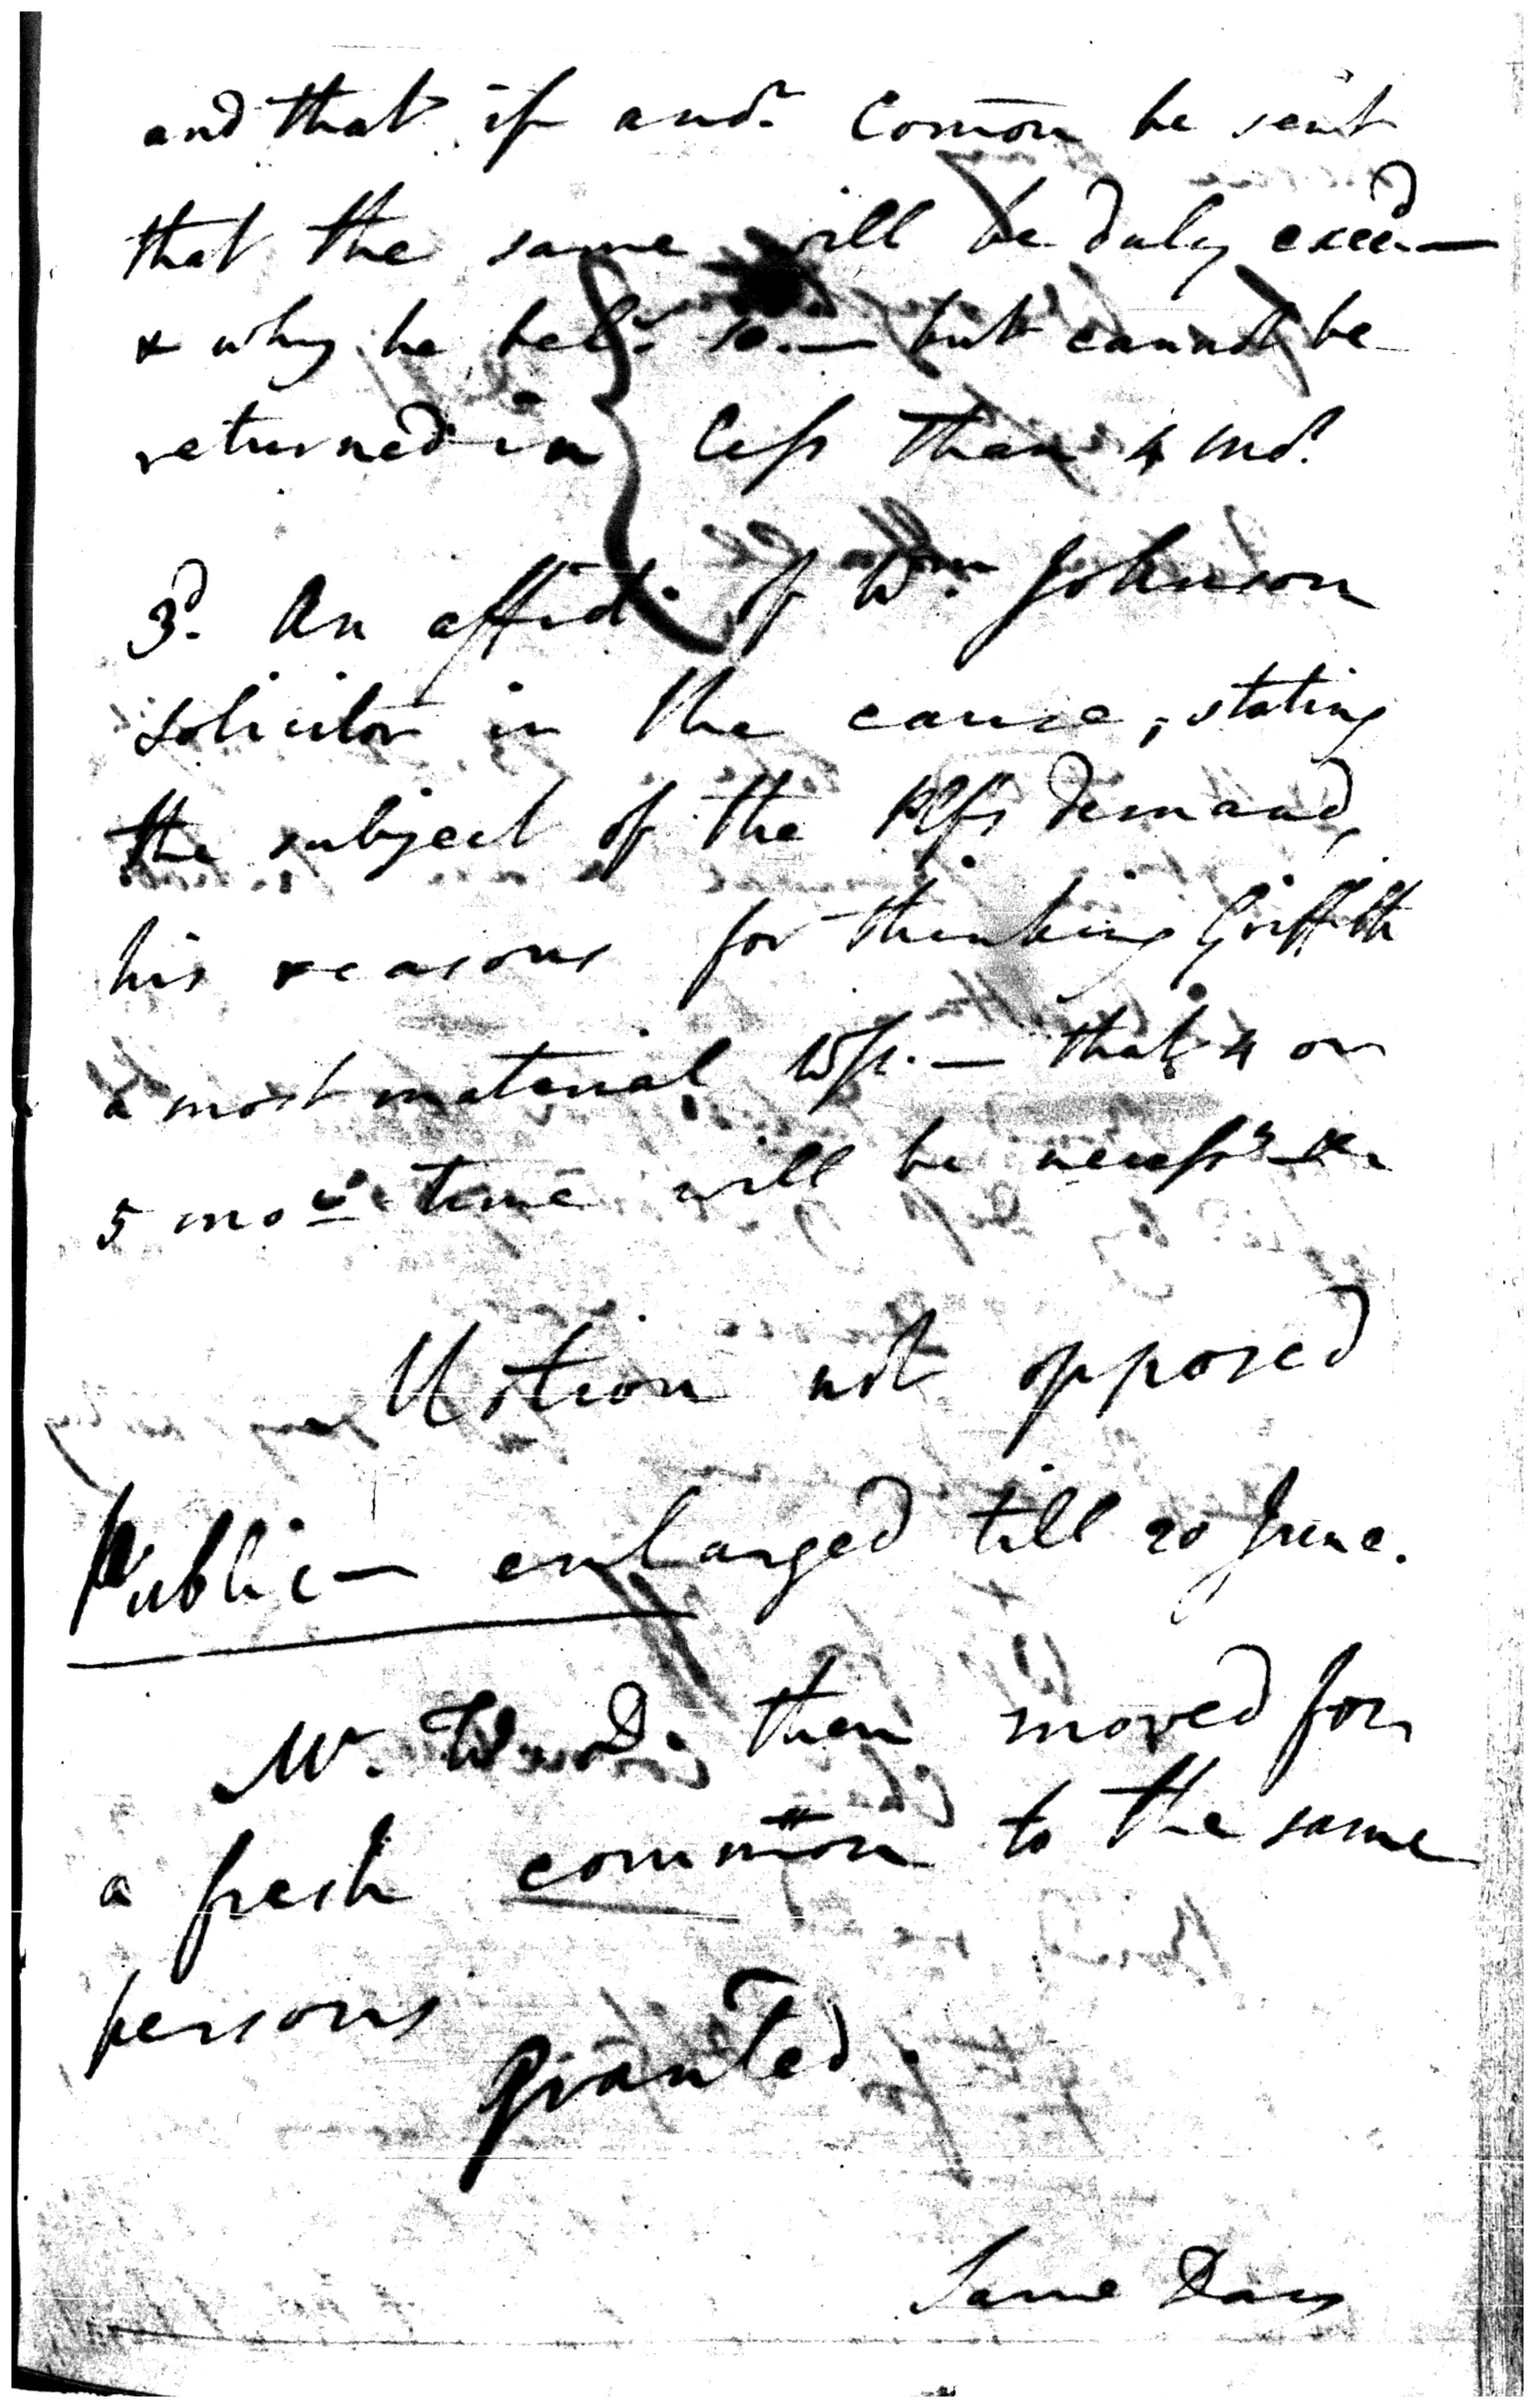 and that if anọr. Comōn be sent
that the same will be duly execd. —
& why he bels. so. — but cannot be
returned in less than 4 mos.
3d. An affidt. of Wm. Johnson
solicitor in the cause, stating
the subject of the Plfs demand,
his reasons for thinking Griffith
a most material Wss. — that 4 or
5 mos. time will be necessy
Motion not opposed
Public— enlarged till 20 June.
Mr. then moved for
a fresh common to the same
persons
Granted.
Same Day